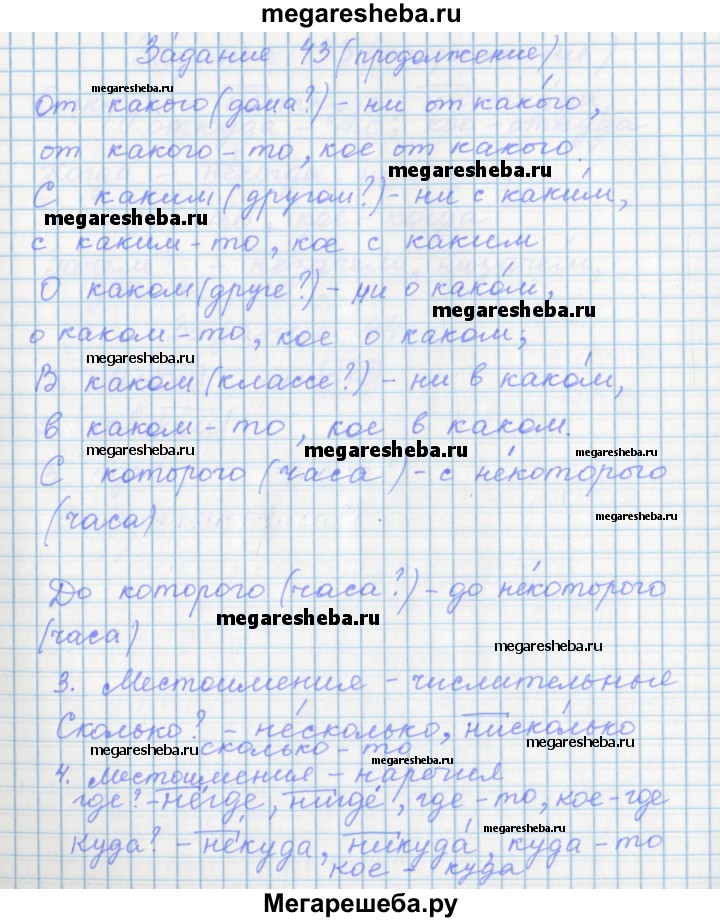 megaresheba.ru
Задание 43 (продолжение)
megaresheba.ru
От какого (дома?) - ни от како́го,
от какого - то, кое от какого.
megaresheba.ru
С каким (другом?) - ни с каки́м,
megaresheba.ru
с каким - то, кое с каким
О каком (друге?) - ни о како́м,
megaresheba.ru
о каком - то, кое о каком;
megaresheba.ru
В каком (классе?) - ни в како́м,
в каком - то, кое в каком.
megaresheba.ru
megaresheba.ru
С которого (часа) - с не́которого
(часа)
megaresheba.ru
До которого (часа?) - до не́которого
megaresheba.ru
(часа)
megaresheba.ru
3. Местоимения - числительные
Сколько? - не́сколько, ниско́лько
megaresheba.ru
сколько - то
megaresheba.ru
4. Местоимения - наречия
megaresheba.ru
где? - не́где, нигде́, где - то, кое - где
megaresheba.ru
Куда? - не́куда, никуда́, куда - то
кое - куда
Мегарешеба.ру